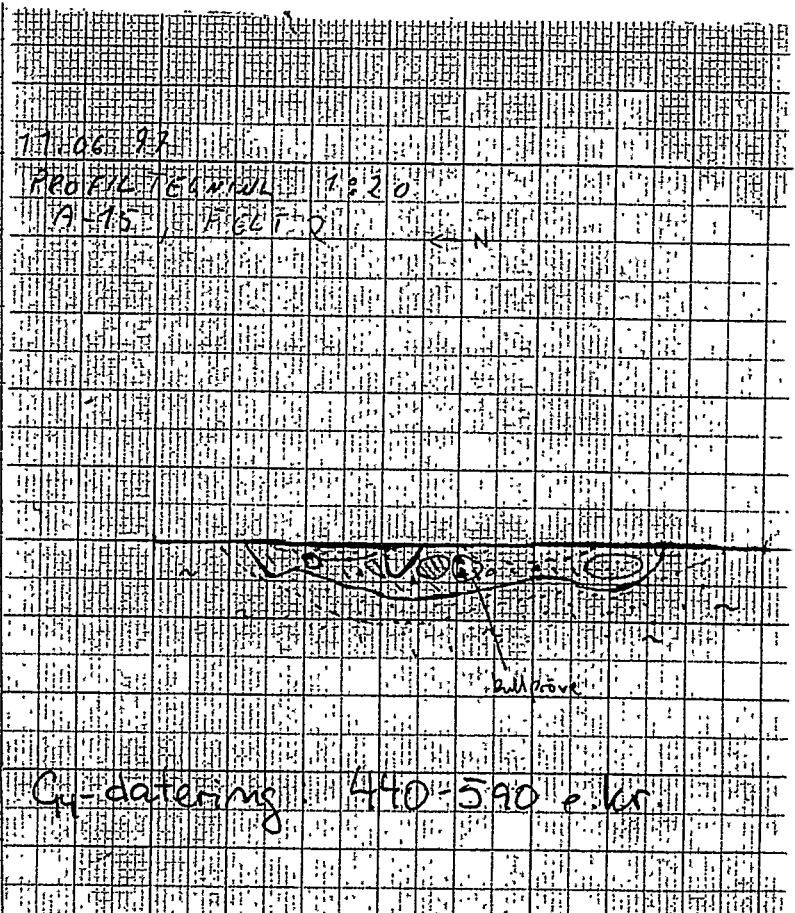 11.06.97
PROFILTEGNING 1:20
A-15, FELT 2
← N
kullprøve
C14-datering 440-590 e.kr.